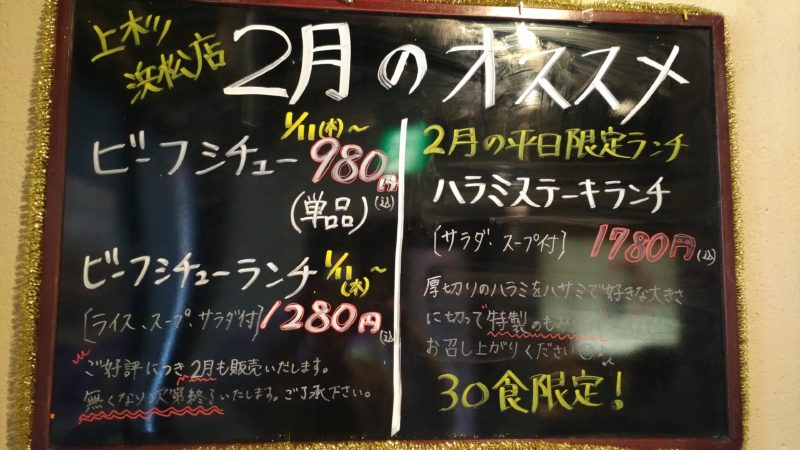 上木ツ
浜松店
2月のオススメ
1/11(木)~
ビーフシチュー 980円(込)
(単品)
ビーフシチューランチ 1/11(木)~
[ライス、スープ、サラダ付] 1280円(込)
ご好評につき2月も販売いたします。
無くなり次第終了いたします。ご了承下さい。
2月の平日限定ランチ
ハラミステーキランチ
[サラダ、スープ付] 1780円(込)
厚切りのハラミをハサミで好きな大きさ
に切って特製のも
お召し上がりください
30食限定!